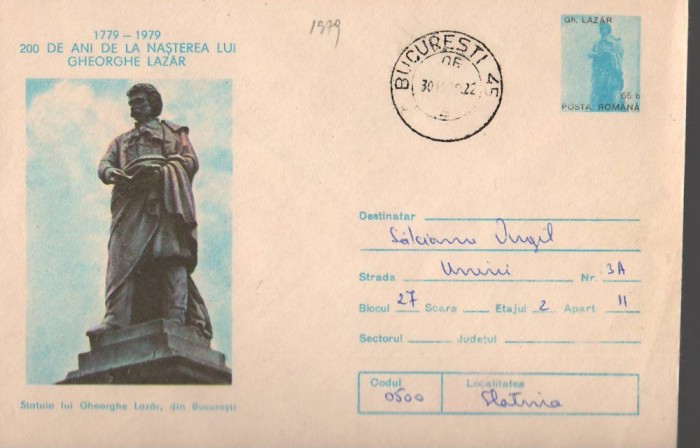 1779 - 1979
200 DE ANI DE LA NAȘTEREA LUI
GHEORGHE LAZĂR
1979
BUCUREȘTI 45
OF
30
22
Gh. LAZĂR
POSTA ROMÂNĂ
Destinatar
Sălcianu Virgil
Strada Unirii Nr. 3A
Blocul 27 Scara Etajul 2 Apart 11
Sectorul Județul
Codul Localitatea
0500 Slatina
Statuia lui Gheorghe Lazăr, din București